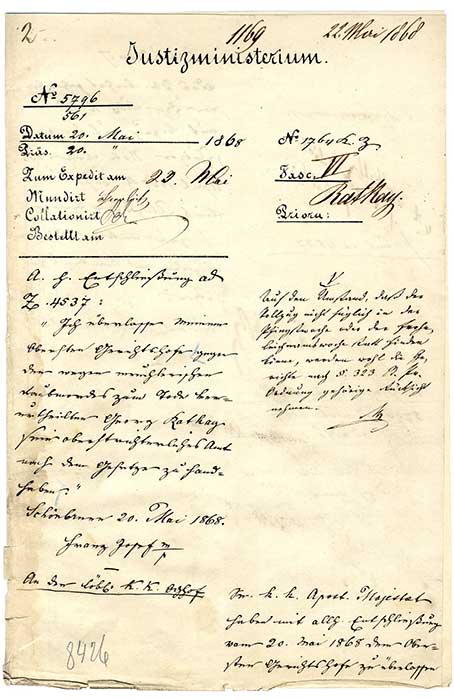 2
1169
22. Mai 1868
Justizministerium.
No 5796
561
Datum 20. Mai 1868
Präs. 20. "
Zum Expedit am 22. Mai
Mundirt
Collationirt
Bestellt am
No 1764 K. Z
Fasc. VI
Ratkay.
Priora:
A. h. Entschließung ad
Z. 4537:
"Ich überlasse Meinem
Obersten Gerichtshofe gegen
den wegen meuchlerischen
Raubmordes zum Tode ver-
urtheilten Georg Ratkay
sein oberstrichterliches Amt
nach dem Gesetze zu hand-
haben."
Schönbrunn 20. Mai 1868.
Franz Josef m/p
An den löbl. K. K. Obsthof
8426
V
Auf den Umstand, daß der
Vollzug nicht füglich in der
Pfingstwoche oder der Frohn-
leichnamswoche statt finden
könne, werden wohl die Ge-
richte nach § 323 St. Pr.
Ordnung gehörige Rücksicht
nehmen.
Se. k. k. Apost. Majestät
haben mit allh. Entschließung
vom 20. Mai 1868 dem Ober-
sten Gerichtshofe zu überlassen